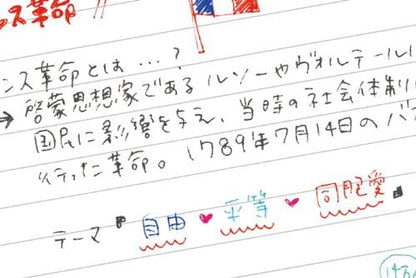 ス革命
ンス革命とは…?
→ 啓蒙思想家である ルソーやヴォルテール
国民に影響を与え、当時の社会体制
行った革命。1789年7月14日のバ
テーマ 自由 ♥ 平等 ♥ 同胞愛